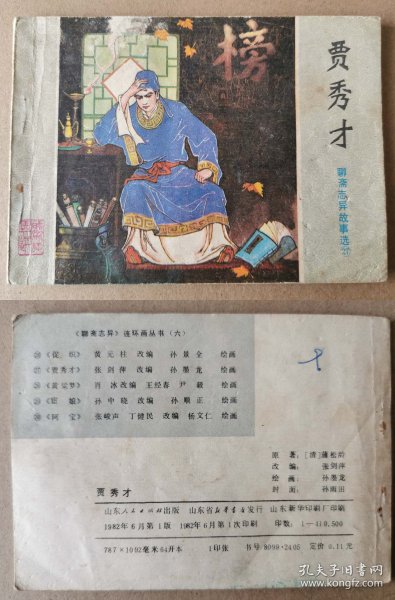 榜
贾秀才
聊斋志异故事选
《聊斋志异》连环画丛书（六）
《促织》 黄元柱 改编 孙景全 绘画
《贾秀才》 张剑萍 改编 孙墨龙 绘画
《黄粱梦》 肖冰改编 王经春 尹毅 绘画
孙中晓 改编 孙顺正 绘画
《阿宝》 张峻声 丁健民 改编 杨文仁 绘画
原著：［清］蒲松龄
改编：张剑萍
绘画：孙墨龙
封面：孙雨田
贾秀才
山东人民出版社出版 山东省新华书店发行 山东新华印刷厂印刷
1982年6月第1版 1982年6月第1次印刷
787×1092毫米64开本 1印张 书号8099·2405 定价0.11元
孔夫子旧书网
www.kongfz.com